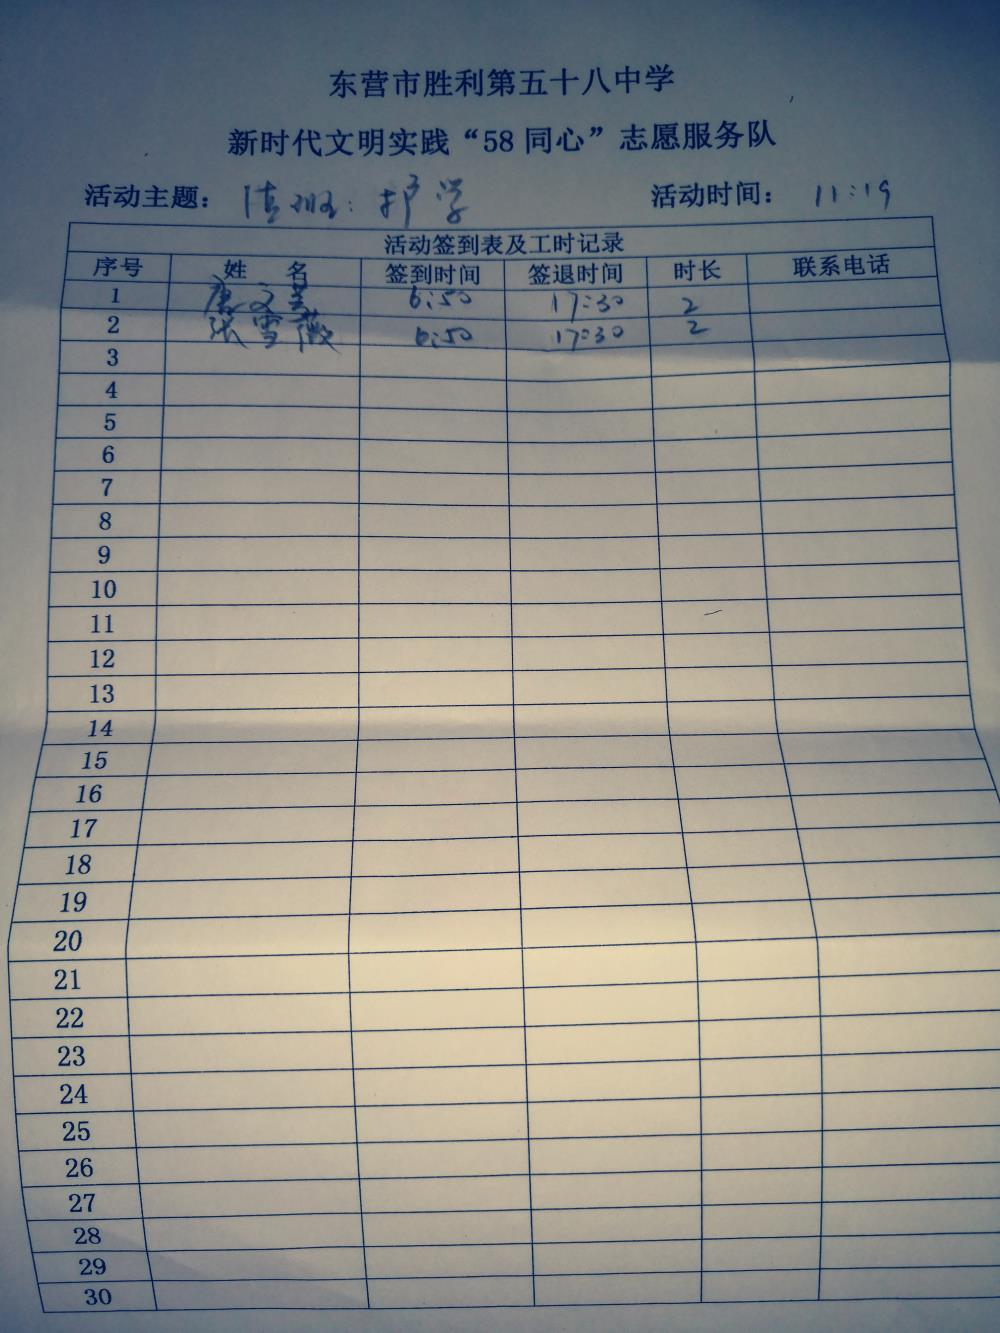 东营市胜利第五十八中学
新时代文明实践“58同心”志愿服务队
活动主题： 护学 活动时间： 11:19
活动签到表及工时记录
序号 姓 名 签到时间 签退时间 时长 联系电话
1 唐文 6:50 17:30 2
2 张雪薇 6:50 17:30 2
3
4
5
6
7
8
9
10
11
12
13
14
15
16
17
18
19
20
21
22
23
24
25
26
27
28
29
30